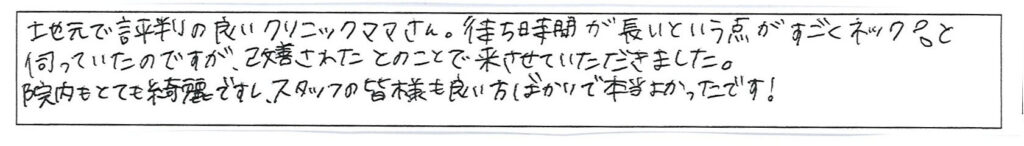 地元で評判の良いクリニックママさん。待ち時間が長いという点がすごくネック。と
伺っていたのですが、改善されたとのことで来させていただきました。
院内もとても綺麗ですし、スタッフの皆様も良い方ばかりで本当よかったです!